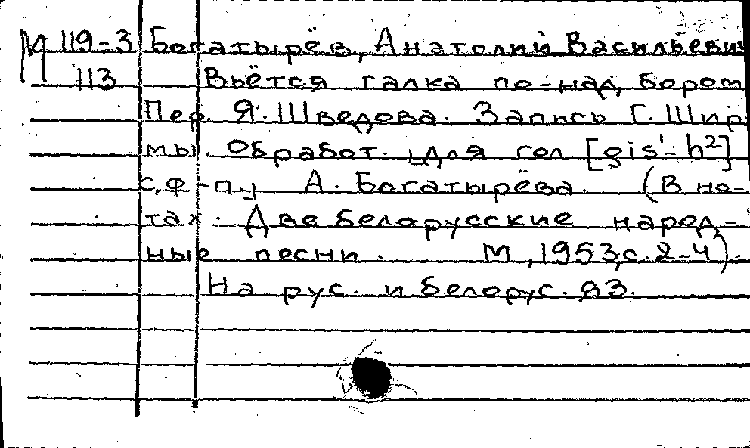 М 119-3 Богатырёв, Анатолий Васильевич
113 Вьётся галка по-над бором
Пер. Я. Шведова. Запись Г. Шир-
мы. Обработ. для гол [gis'-h²]
с ф-п., А. Богатырёва. (В но-
тах: Две белорусские народ-
ные песни. М., 1953, с. 2-4).
На рус. и белорус. яз.